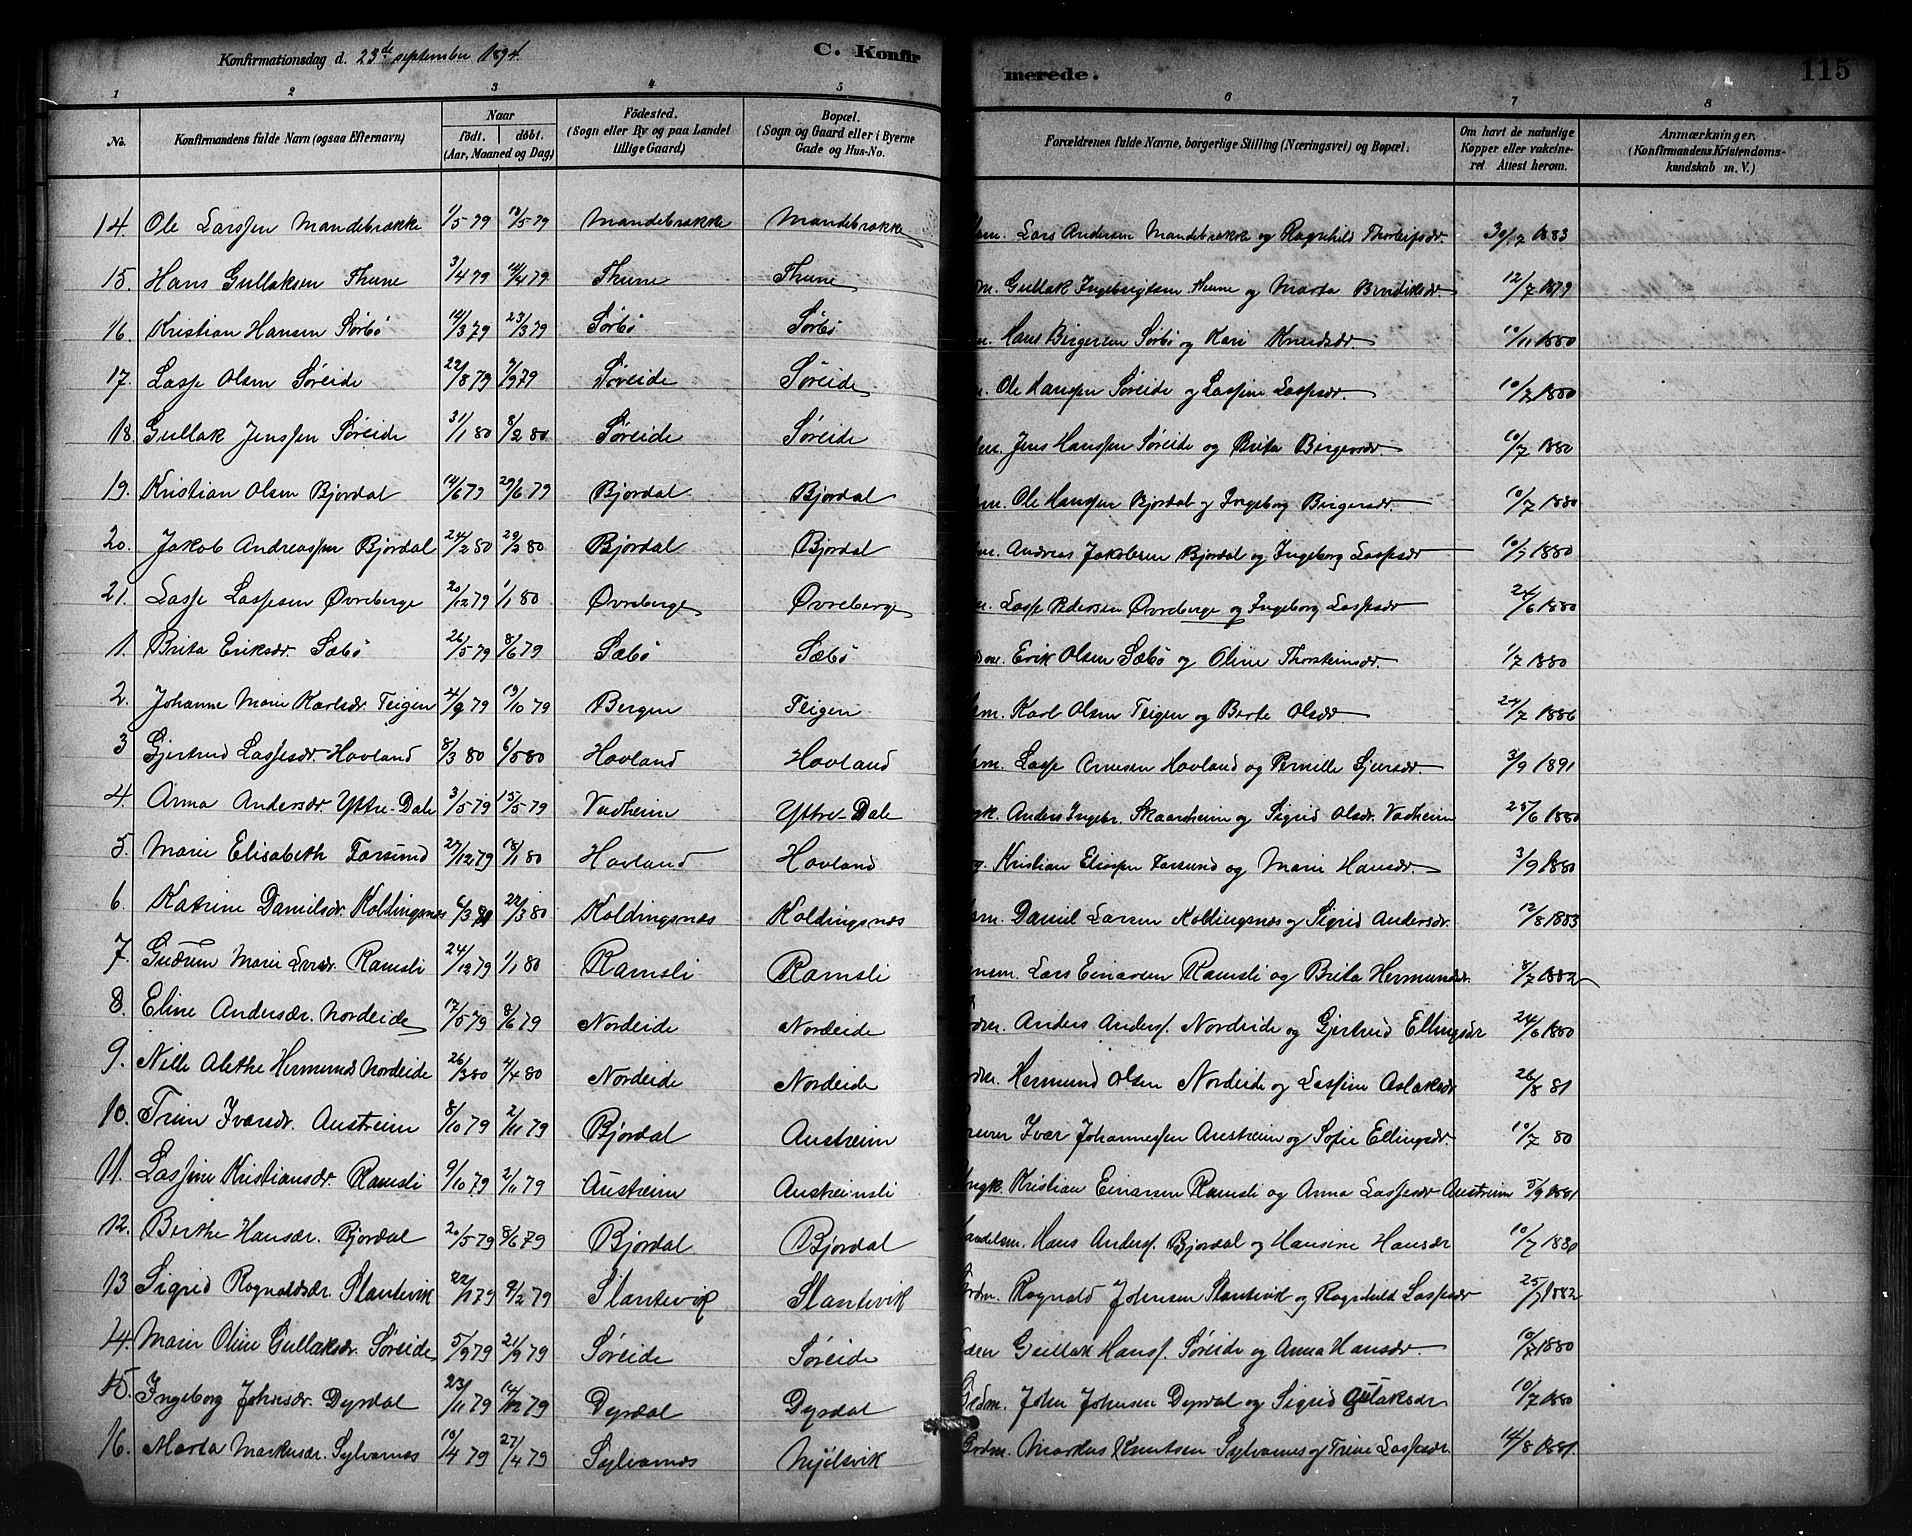 Konfirmationsdag d. 23de september 1894. C. Konfir merede. 115
1 2 3 4 5 6 7 8
No. Konfirmandens fulde Navn (ogsaa Efternavn) Naar født. døbt. (Aar, Maaned og Dag) Fødested. (Sogn eller By og paa Landet tillige Gaard) Bopæl. (Sogn og Gaard eller i Byerne Gade og Hus-No. Forældrenes fulde Navne, borgerlige Stilling (Næringsvei) og Bopæl. Om havt de naturlige Kopper eller vakcineret Attest herom. Anmærkninger, (Konfirmandens Kristendomskundskab m. V.)
14. Ole Larssen Mandebrække 1/5 79 18/5 79 Mandebrække Mandebrække Lars Andersen Mandebrække og Ragnhild 30/7 1883
15. Hans Gullaksen Thune 3/4 79 14/4 79 Thune Thune Gullak Ingebrigtsen Thune og Marta Bendiksdr. 12/7 1879
16. Kristian Hansen Sørbø 14/3 79 23/3 79 Sørbø Sørbø Hans Birgersen Sørbø og Kari Knudsdr. 10/11 1880
17. Lasse Olsen Søreide 22/8 79 7/9 79 Søreide Søreide Ole Hanssen Søreide og Lassine Lassesdr. 10/7 1880
18. Gullak Jenssen Søreide 31/1 80 8/2 80 Søreide Søreide Jens Hanssen Søreide og Brita Birgersdr. 10/7 1880
19. Kristian Olsen Bjordal 14/6 79 29/6 79 Bjordal Bjordal Ole Hanssen Bjordal og Ingeborg Birgersdr. 10/7 1880
20. Jakob Andreassen Bjordal 24/2 80 29/2 80 Bjordal Bjordal Andreas Jakobsen Bjordal og Ingeborg Lassesdr 10/7 1880
21. Lasse Lassesen Øvreberge 20/12 79 1/1 80 Øvreberge Øvreberge Lasse Pedersen Øvreberge og Ingeborg Lassesdr 24/6 1880
1. Brita Eriksdr. Sæbø 26/5 79 8/6 79 Sæbø Sæbø Erik Olsen Sæbø og Oline Thorsteinsdr. 1/7 1880
2. Johanne Marie Karlsdr. Teigen 4/9 79 19/10 79 Bergen Teigen Karl Olsen Teigen og Berte Olsdr 24/7 1886
3 Gjertrud Lassesdr. Hovland 8/3 80 6/5 80 Hovland Hovland Lasse Arnesen Hovland og Pernille Sjursdr. 3/9 1891
4. Anna Andersdr. Yttre-Dale 3/5 79 15/5 79 Vadheim Yttre-Dale Anders Ingebr. Skaarheim og Sigrid Olsdr. Vadheim 25/6 1880
5. Marie Elisabeth Farsund 27/12 79 18/1 80 Hovland Hovland Kristian Eliassen Farsund og Marie Hansdr. 3/9 1880
6. Katrine Danielsdr. Koldingsnæs 6/3 80 22/3 80 Koldingsnæs Koldingsnæs Daniel Larsen Koldingsnæs og Sigrid Andersdr. 12/8 1883
7. Gudrun Marie Larsdr. Ramsli 24/12 79 1/1 80 Ramsli Ramsli Lars Einarsen Ramsli og Brita Hermundsdr. 8/7 1882
8. Eline Andersdr. Nordeide 17/5 79 8/6 79 Nordeide Nordeide Anders Anderss. Nordeide og Gjertrud Ellingsdr 24/6 1880
9. Nille Alethe Hermunds Nordeide 26/3 80 4/4 80 Nordeide Nordeide Hermund Olsen Nordeide og Lassine Aslaksdr 26/8 81
10. Trine Iversdr. Austreim 8/10 79 2/11 79 Bjordal Austreim Iver Johannessen Austreim og Sofie Ellingsdr. 10/7 80
11. Lassine Kristiansdr. Ramsli 9/10 79 2/11 79 Austreim Austreimsli Kristian Einarsen Ramsli og Anna Lassesdr Austreim 5/9 1881
12. Berthe Hansdr. Bjordal 20/5 79 8/6 79 Bjordal Bjordal Handelsm. Hans Anderss. Bjordal og Hansine Hansdr 10/7 1880
13 Sigrid Ragnaldsdr. Slantevik 22/1 79 9/2 79 Slantevik Slantevik Grdm. Ragnald Johnsen Slantevik og Ragnhild Lassesdr 25/7 1882
14. Marie Oline Gullaksdr. Søreide 5/9 79 21/9 79 Søreide Søreide Gullak Hanss. Søreide og Anna Hansdr. 10/7 1880
15. Ingeborg Johnsdr. Dyrdal 23/11 79 14/12 79 Dyrdal Dyrdal Grdm. John Johnsen Dyrdal og Sigrid Gullaksdr 10/7 1880
16. Marta Markusdr. Sylvarnæs 10/4 79 27/4 79 Sylvarnæs Mjølsvik Grdm. Markus Knutsen Sylvarnæs og Trine Lassesdr 14/8 1881.